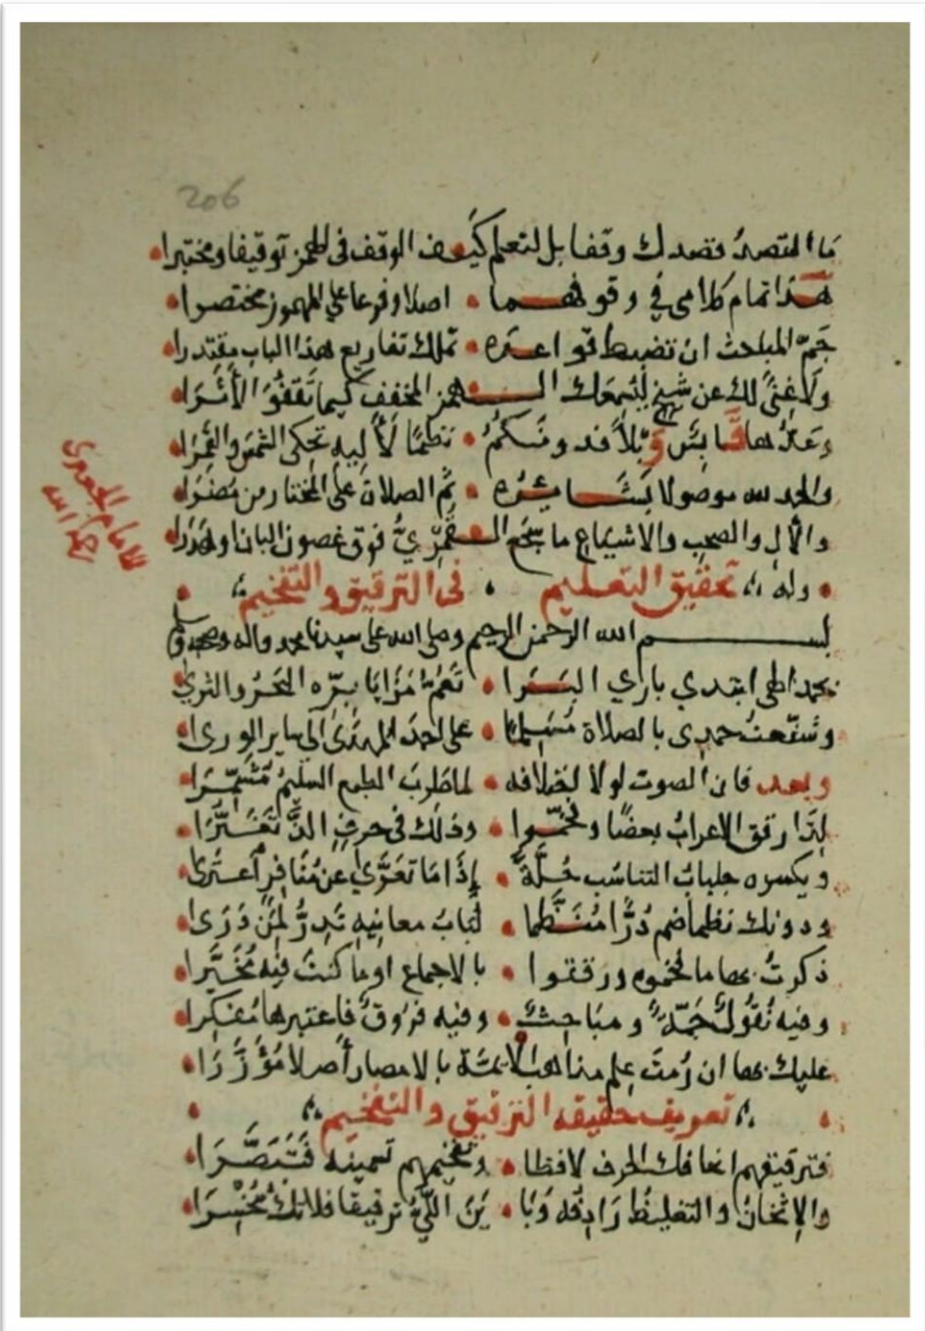 206
ما القصد قصدك وقفا بل لتعلم كيف الوقف في الهمز توقيفا ومختبرا
هذا تمام كلامي في وقوفهما • اصلا وفرعا على المهموز مختصرا
جم المباحث ان تضبط قواعده • تملك تفاريع هذا الباب مقتدرا
ولا غنى لك عن شيخ ليسمعك الهمز المخفف كيما تقتفو الأثرا
نظما لآليه تحكى الشمس والقمرا
والحمد لله موصولا بشائره • ثم الصلاة على المختار من مضرا
والآل والصحب والاشياع ما سجع القمري فوق غصون البان او هدرا
للامام الجعبري رحمه الله
• وله تحقيق التعليم • في الترقيق والتفخيم •
بسم الله الرحمن الرحيم وصلى الله على سيدنا محمد واله وصحبه وسلم
بحمد الهى ابتدي باري البرا • تعم مزايا بره البحر والثرى
وشفعت حمدى بالصلاة مسلما • على احمد المهدى الى ساير الورى
وبعد فان الصوت لولا اختلافه • لما طرب الطبع السليم مشمرا
لذا رقق الاعراب بعضا وفخموا • وذلك في حرف الذ
ويكسوه جلباب التناسب حلة • إذا ما تعرى عن منافر اعترى
ودونك نظما ضم درا منظما • لباب معانيه تدر لمن درى
ذكرت بها ما فخموه ورققوا • بالاجماع او ما كنت فيه مخيرا
وفيه نقول جمة ومباحث • وفيه فروق فاعتبرها مفكرا
عليك بها ان رمت علم مذاهب الائمة بالامصار أصلا مؤزرا
• تعريف حقيقه الترقيق والتفخيم •
فترقيقهم انحافك الحرف لافظا • وتفخيمهم تسمينه فتبصرا
والإثخان والتغليظ رادفه وبا • ين اللي ترقيقا فلا تك مخسرا